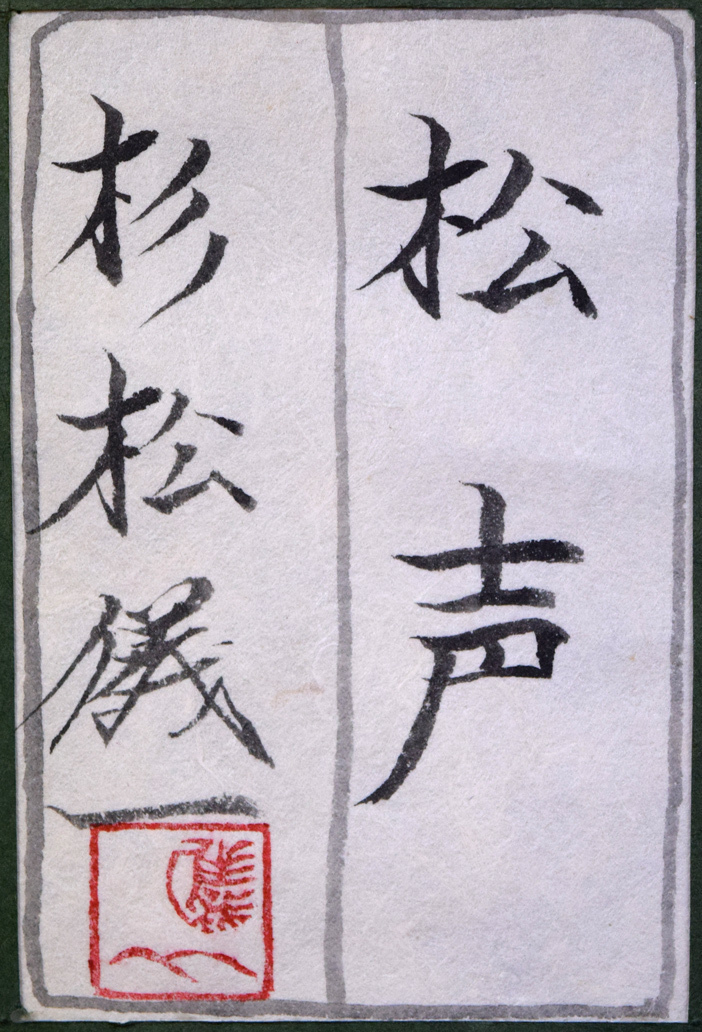 松声
杉松儀一